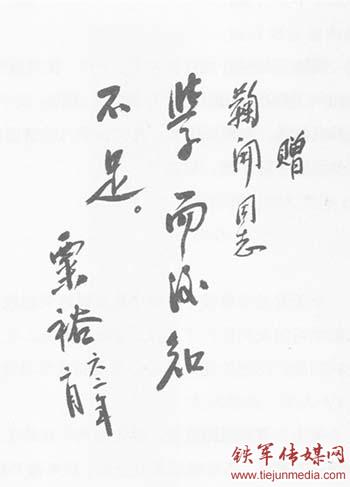 赠
鞠開同志
學而後知
不足。
粟裕 六二年
二月
铁军传媒网
www.tiejunmedia.com